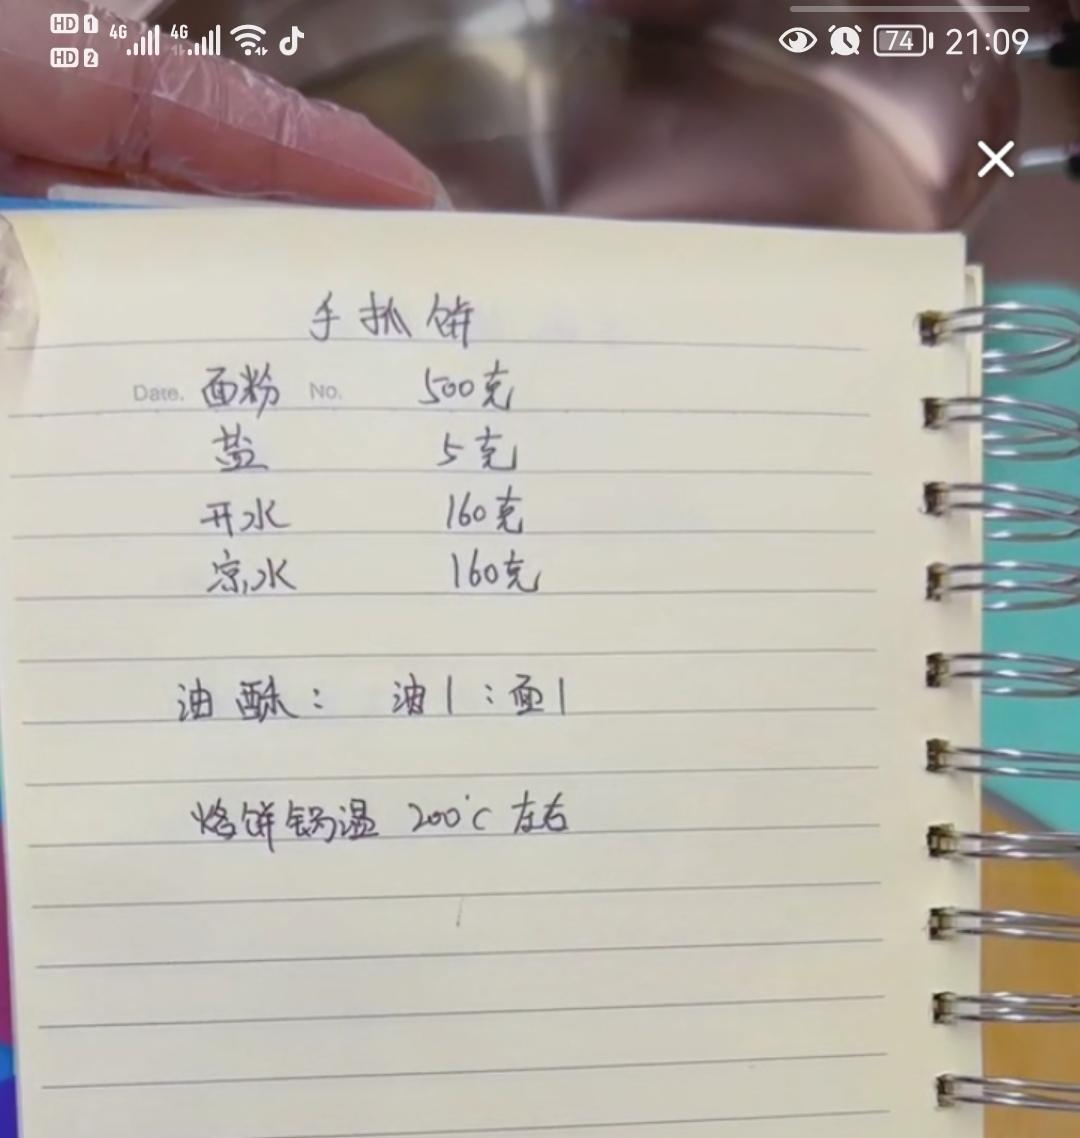 HD 1 4G 4G 74 21:09
HD 2
手抓饼
Date. 面粉 No. 500克
盐 5克
开水 160克
凉水 160克
油酥： 油1：面1
烙饼锅温 200℃ 左右